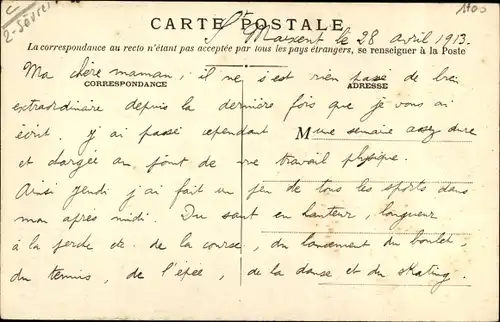 2-Sèvres
1100
CARTE POSTALE
St Maixent le 28 avril 1913.
La correspondance au recto n'étant pas acceptée par tous les pays étrangers, se renseigner à la Poste
Ma chère maman ; il ne s'est rien passé de bien
CORRESPONDANCE ADRESSE
extraordinaire depuis la dernière fois que je vous ai
écrit. j'y ai passé cependant M une semaine assez dure
et chargée au point de vue travail physique.
Ainsi jeudi j'ai fait un peu de tous les sports dans
mon après midi. Du saut en hauteur, longueur
à la perche etc. de la course, du lancement du boulet,
du tennis, de l'épée, de la danse et du skating.